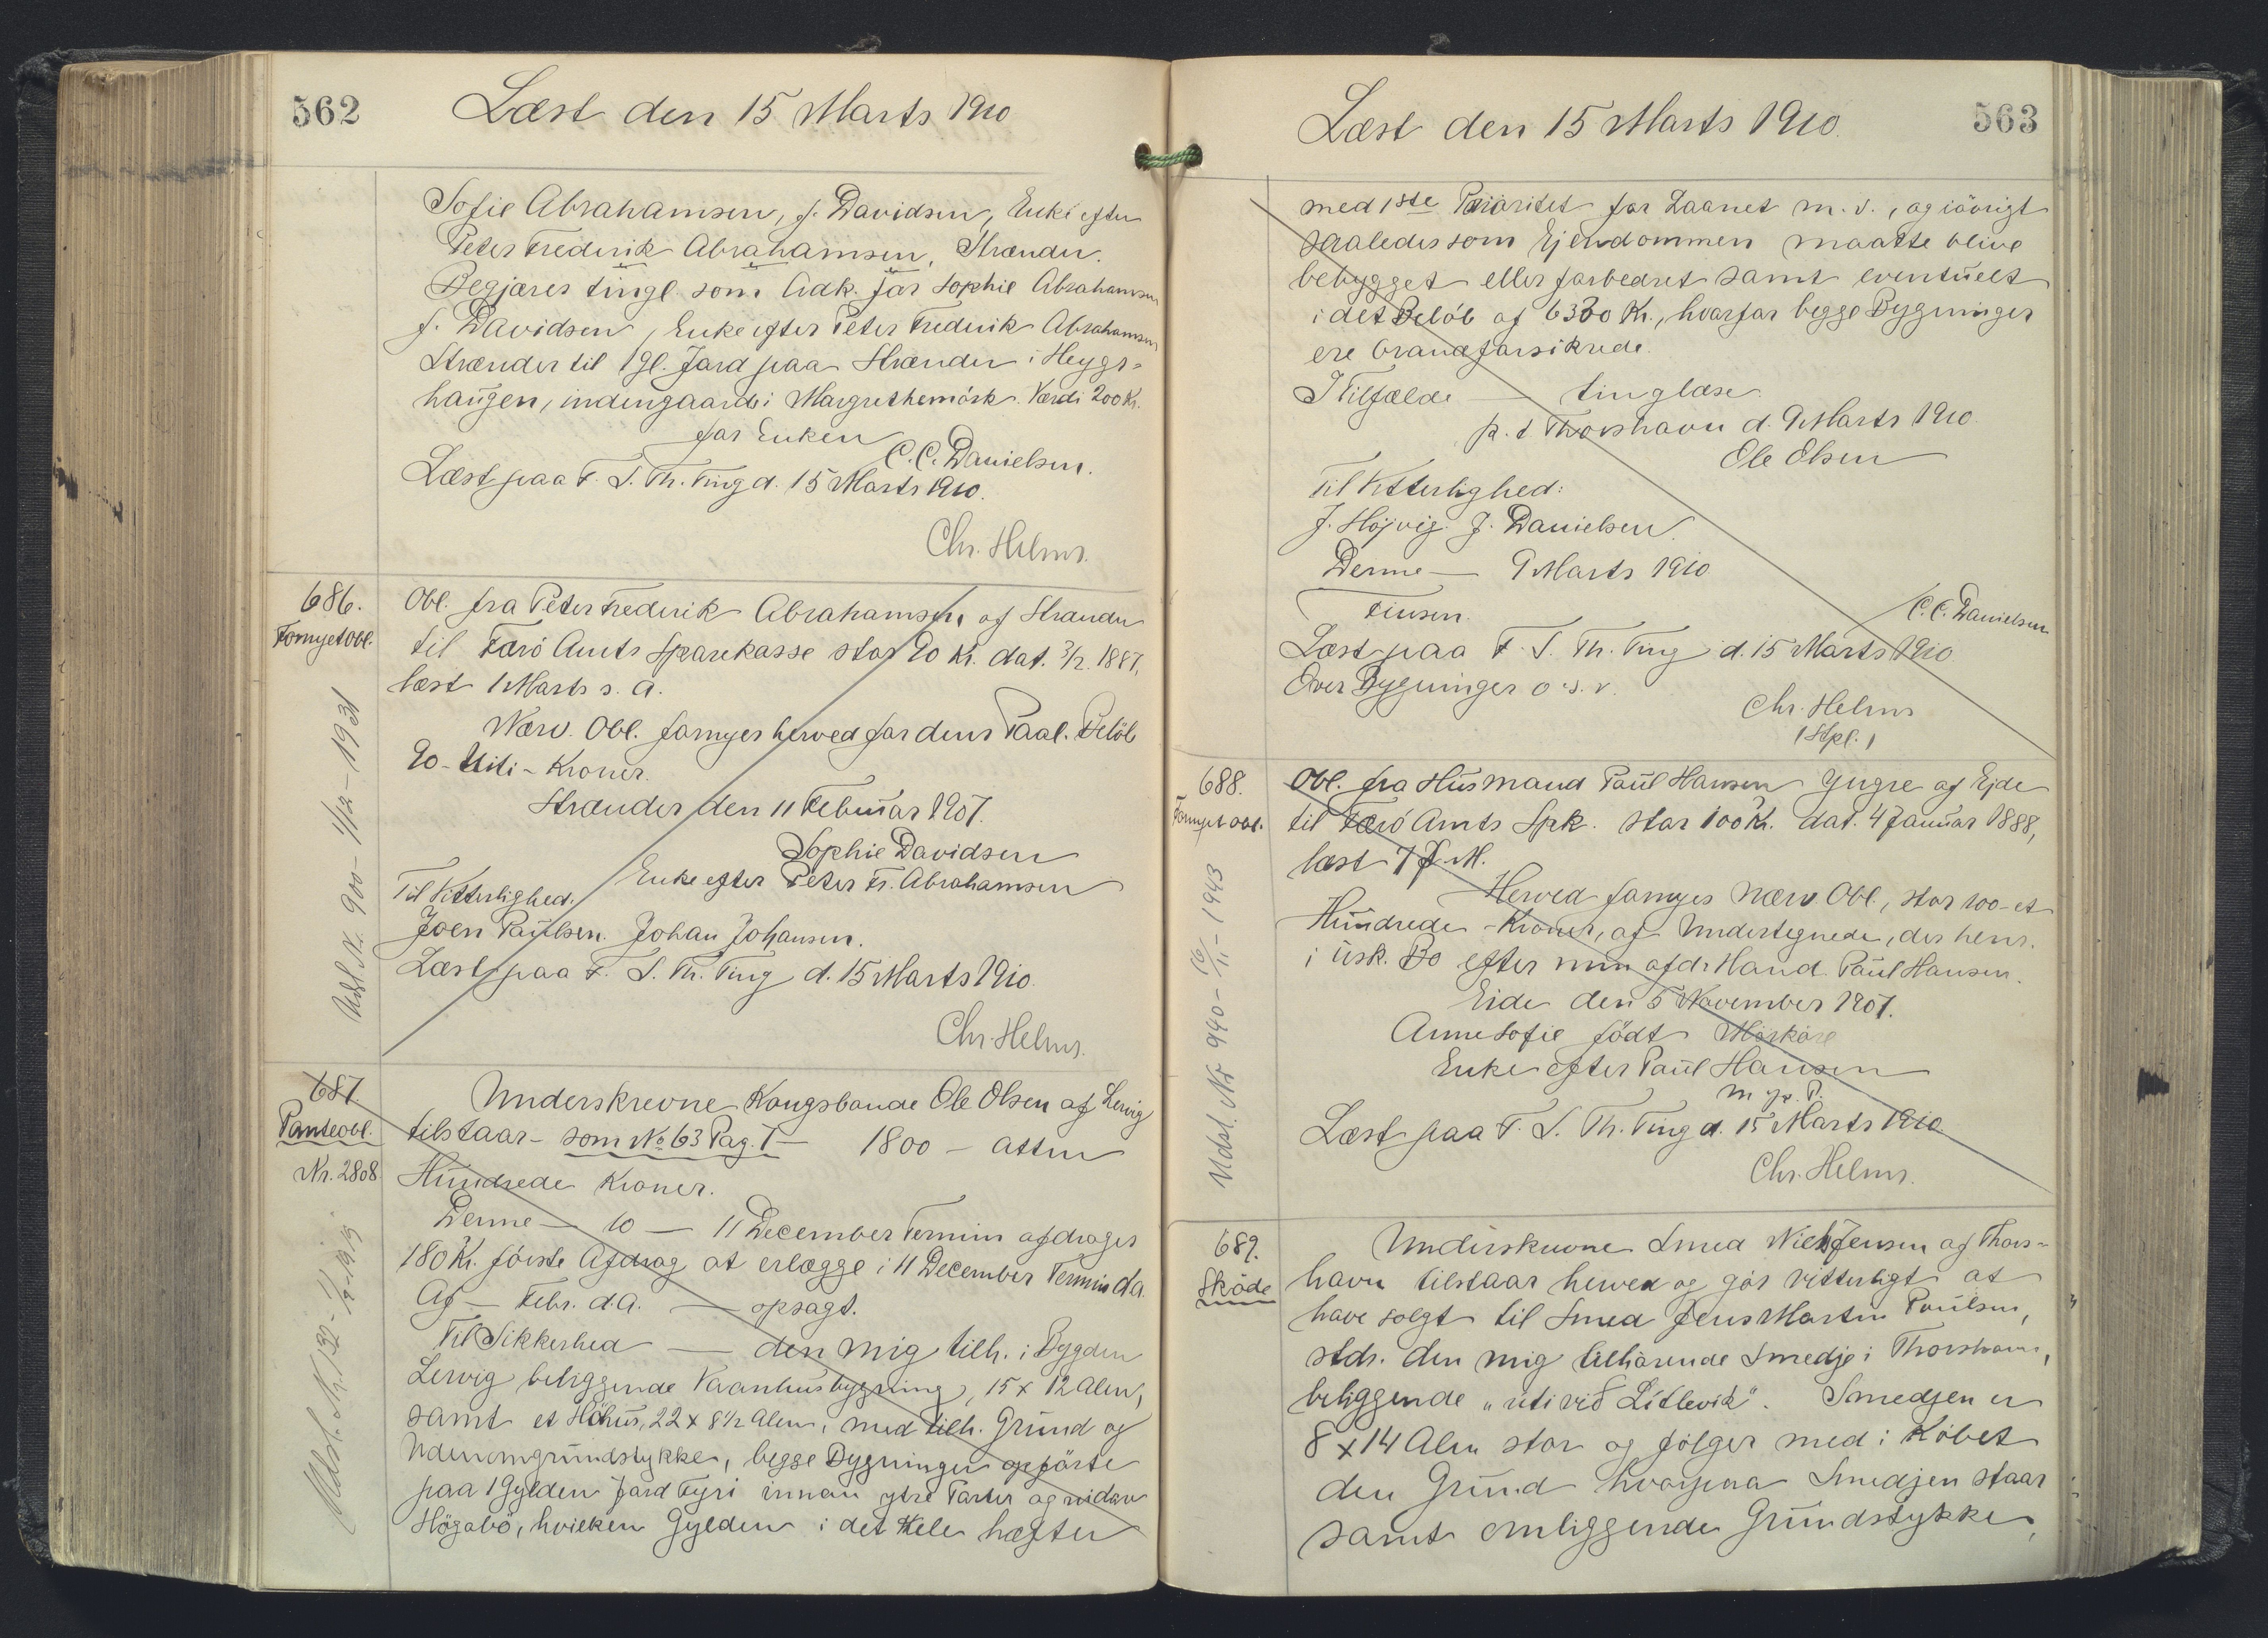 562
Læst den 15 Marts 1910
Sofie Abrahamsen, f. Davidsen, Enke efter
Peter Frederik Abrahamsen, Strænder.
Begjæres tingl. som Adk. for Sophie Abrahamsen
f. Davidsen, Enke efter Peter Frederik Abrahamsen
Strænder til 1 Gl. Jord paa Strænder i Heygs-
haugen, indengaards i Margrethemörk. Værdi 200 Kr.
for Enken
C. C. Danielsen.
Læst paa F. S. Th. Ting d. 15 Marts 1910.
Chr. Helms.
686.
Fornyet Obl.
Obl. fra Peter Frederik Abrahamsen af Strænder
til Færö Amts Sparekasse stor 90 Kr. dat. 3/2. 1887,
læst 1 Marts s. A.
Nærv. Obl. fornyes herved for dens Paal. Belöb
90 - Niti - Kroner.
Strænder den 11 Februar 1907.
Sophie Davidsen
Enke efter Peter Fr. Abrahamsen
Til Vitterlighed.
Joen Paulsen. Johan Johansen.
Læst paa F. S. Th. Ting d. 15 Marts 1910.
Chr. Helms.
Udsl. Nr. 900 - 1/12 - 1931
687.
Panteobl.
Nr. 2808
Underskrevne Kongsbonde Ole Olsen af Lervig
tilstaar - som No 63 Pag. T — 1800 - atten
Hundrede Kroner.
Denne — 10 — 11 December Termin afdrages
180 Kr. förste Afdrag at erlægge i 11 December Termin d.A.
Af — Febr. d.A. — opsagt.
Til Sikkerhed — den mig tilh. i Bygden
Lervig beliggende Vaanhusbygning, 15 x 12 Alen,
samt et Höhus, 22 x 8 1/2 Alen, med tilh. Grund og
Udenomgrundstykke, begge Bygninger opförte
paa 1 Gylden Jord Fyri innan ytre Parter og nidan
Högabö, hvilken Gylden i det Hele hæfter
563
Læst den 15 Marts 1910.
med 1ste Prioritet for Laanet m. v., og iövrigt
saaledes som Ejendommen maatte blive
bebygget eller forbedret samt eventuelt
i det Belöb af 6300 Kr., hvorfor begge Bygninger
ere brandforsikrede.
I Tilfælde — tinglæse.
p. t. Thorshavn d. 9 Marts 1910.
Ole Olsen
Til Vitterlighed:
J. Höjvig. J. Danielsen.
Denne — 9 Marts 1910
Finsen.
C. C. Danielsen
Læst paa F. S. Th. Ting d. 15 Marts 1910
Over Bygninger o. s. v.
Chr. Helms
(Stpl.)
688.
Fornyet Obl.
Obl. fra Husmand Paul Hansen Yngre af Ejde
til Færö Amts Spk. stor 100 Kr. dat. 4 Januar 1888,
læst 7 f. M.
Herved fornyes Nærv Obl., stor 100 - et
Hundrede - Kroner, af Undertegnede, der hens.
i usk. Bo efter min afd. Mand Paul Hansen.
Eide den 5 November 1907.
Anne Sofie född Mörköre
Enke efter Paul Hansen
m. f. P.
Læst paa F. S. Th. Ting d. 15 Marts 1910
Chr. Helms.
Udsl. Nr 940 - 16/11 - 1943
689.
Sköde
Underskrevne Smed Niels Jensen af Thors-
havn tilstaar herved og gör vitterligt at
have solgt til Smed Jens Martin Poulsen,
stds. den mig tilhörende Smedje i Thorshavn,
beliggende "úti við Lítlevik". Smedjen er
8 x 14 Alen stor og fölger med i Köbet
den Grund hvorpaa Smedjen staar
samt omliggende Grundstykke,